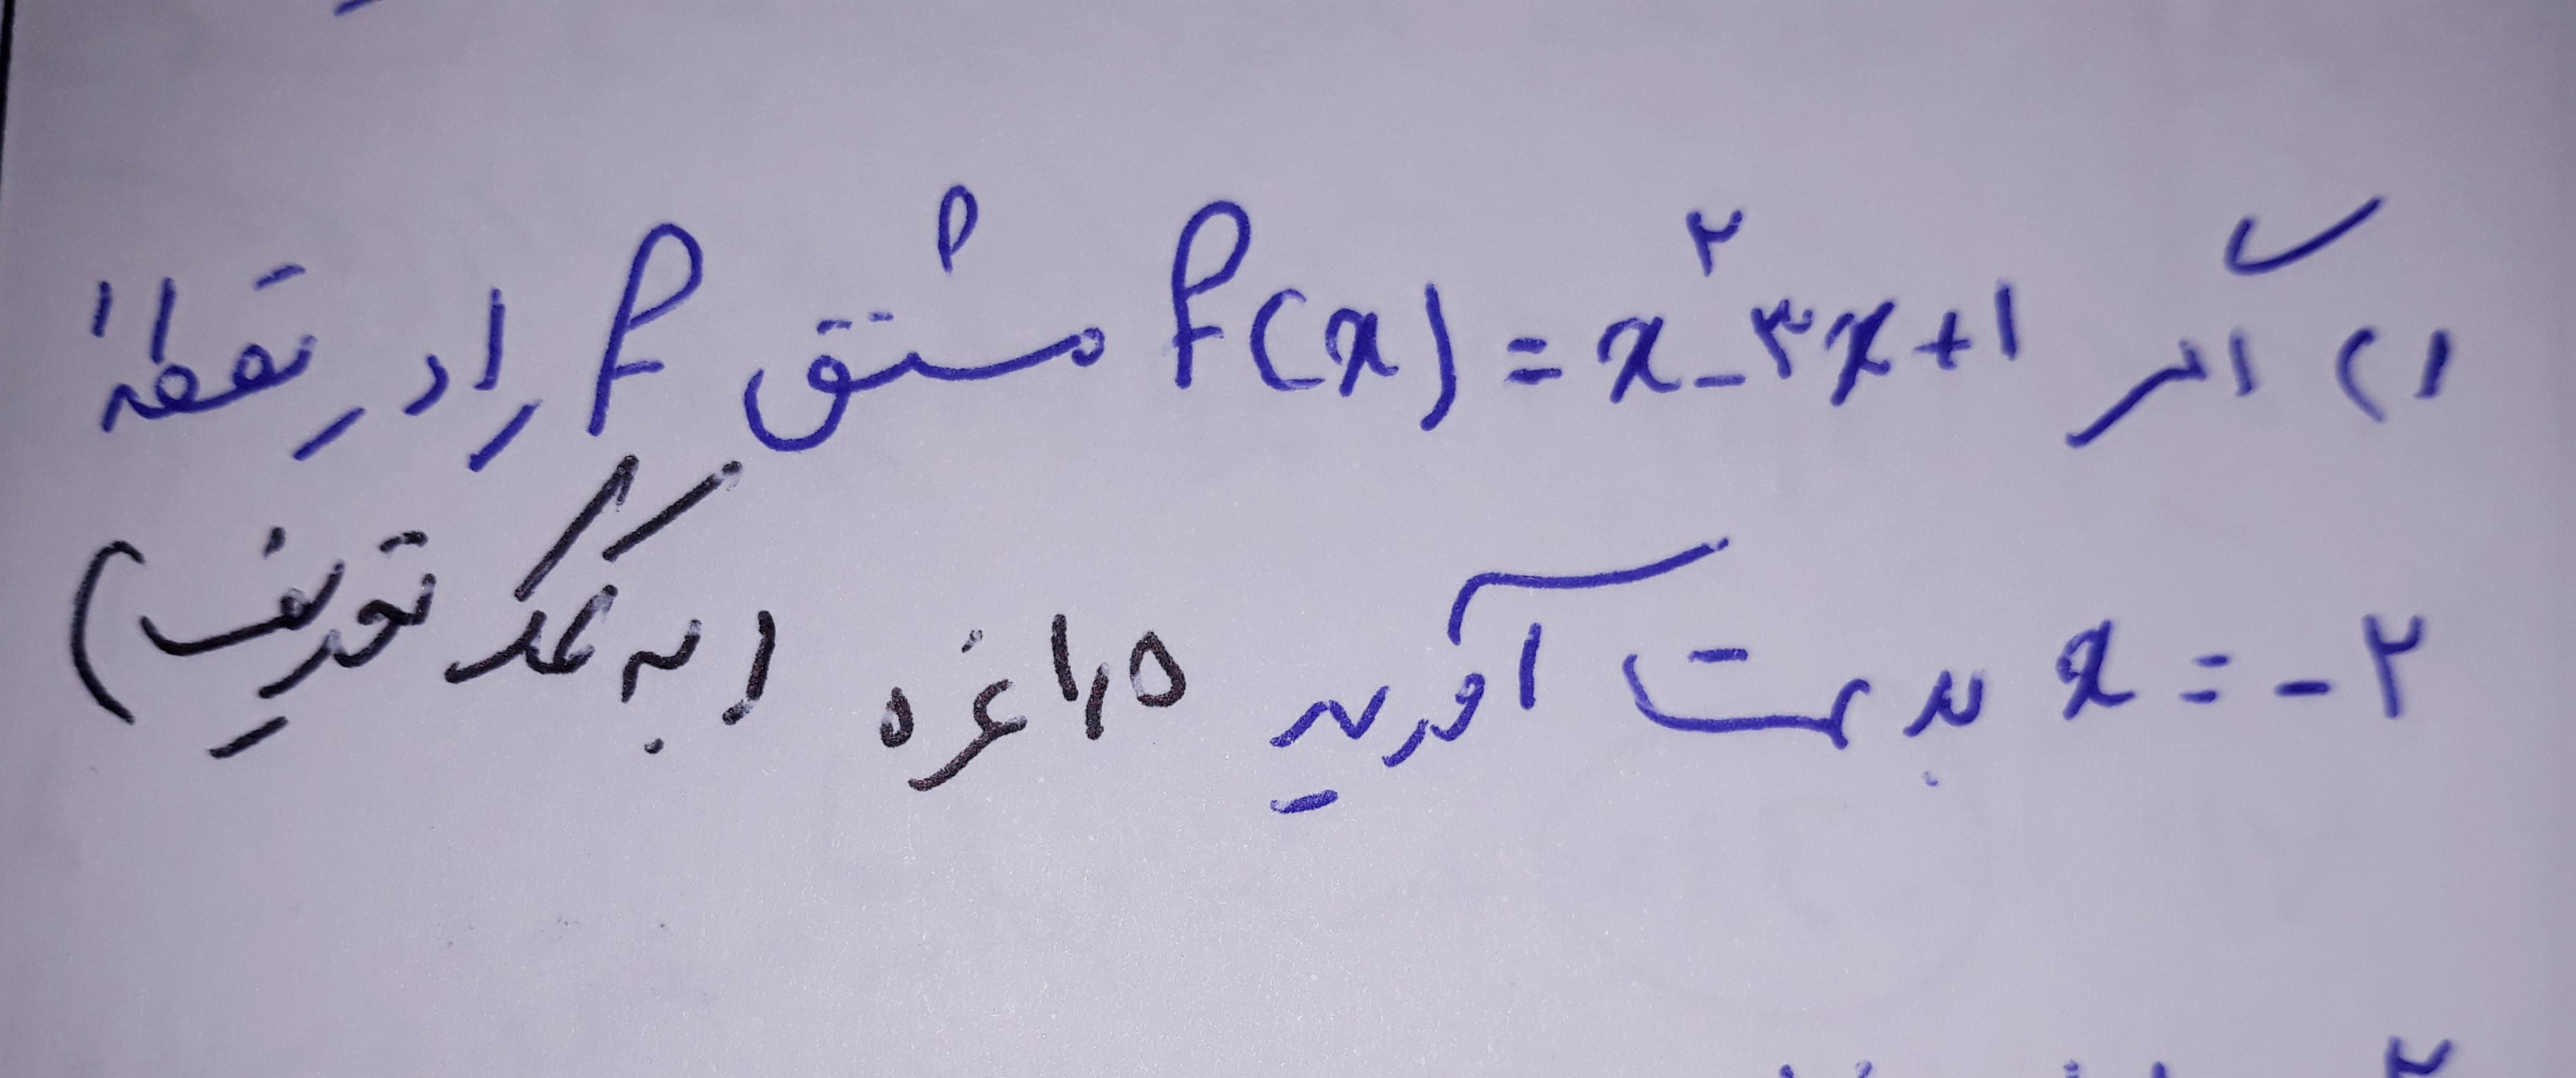 ۱) اگر f(x) = x² - ۳x + ۱ مشتق f را در نقطهٔ
x = -۲ بدست آورید ۱٫۵ نمره (به کمک تعریف)